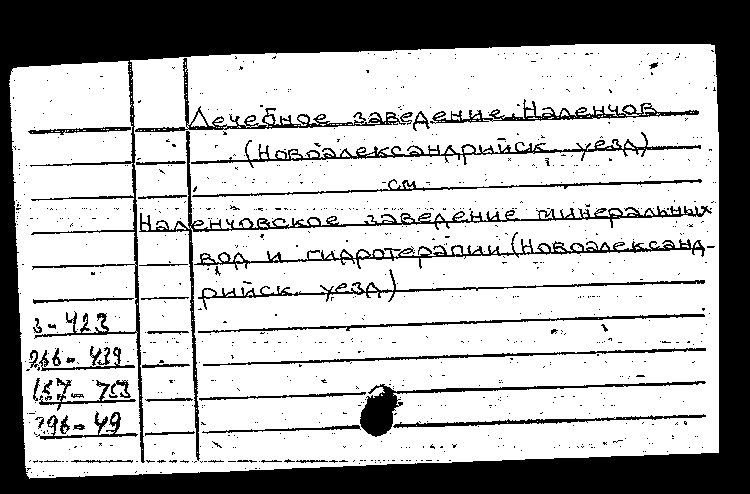 Лечебное заведение Наленчов
(Новоалександрийск уезд)
см
Наленчовское заведение минеральных
вод и гидротерапии (Новоалександ-
рийск. уезд)
3-423
266-439
157-753
296-49